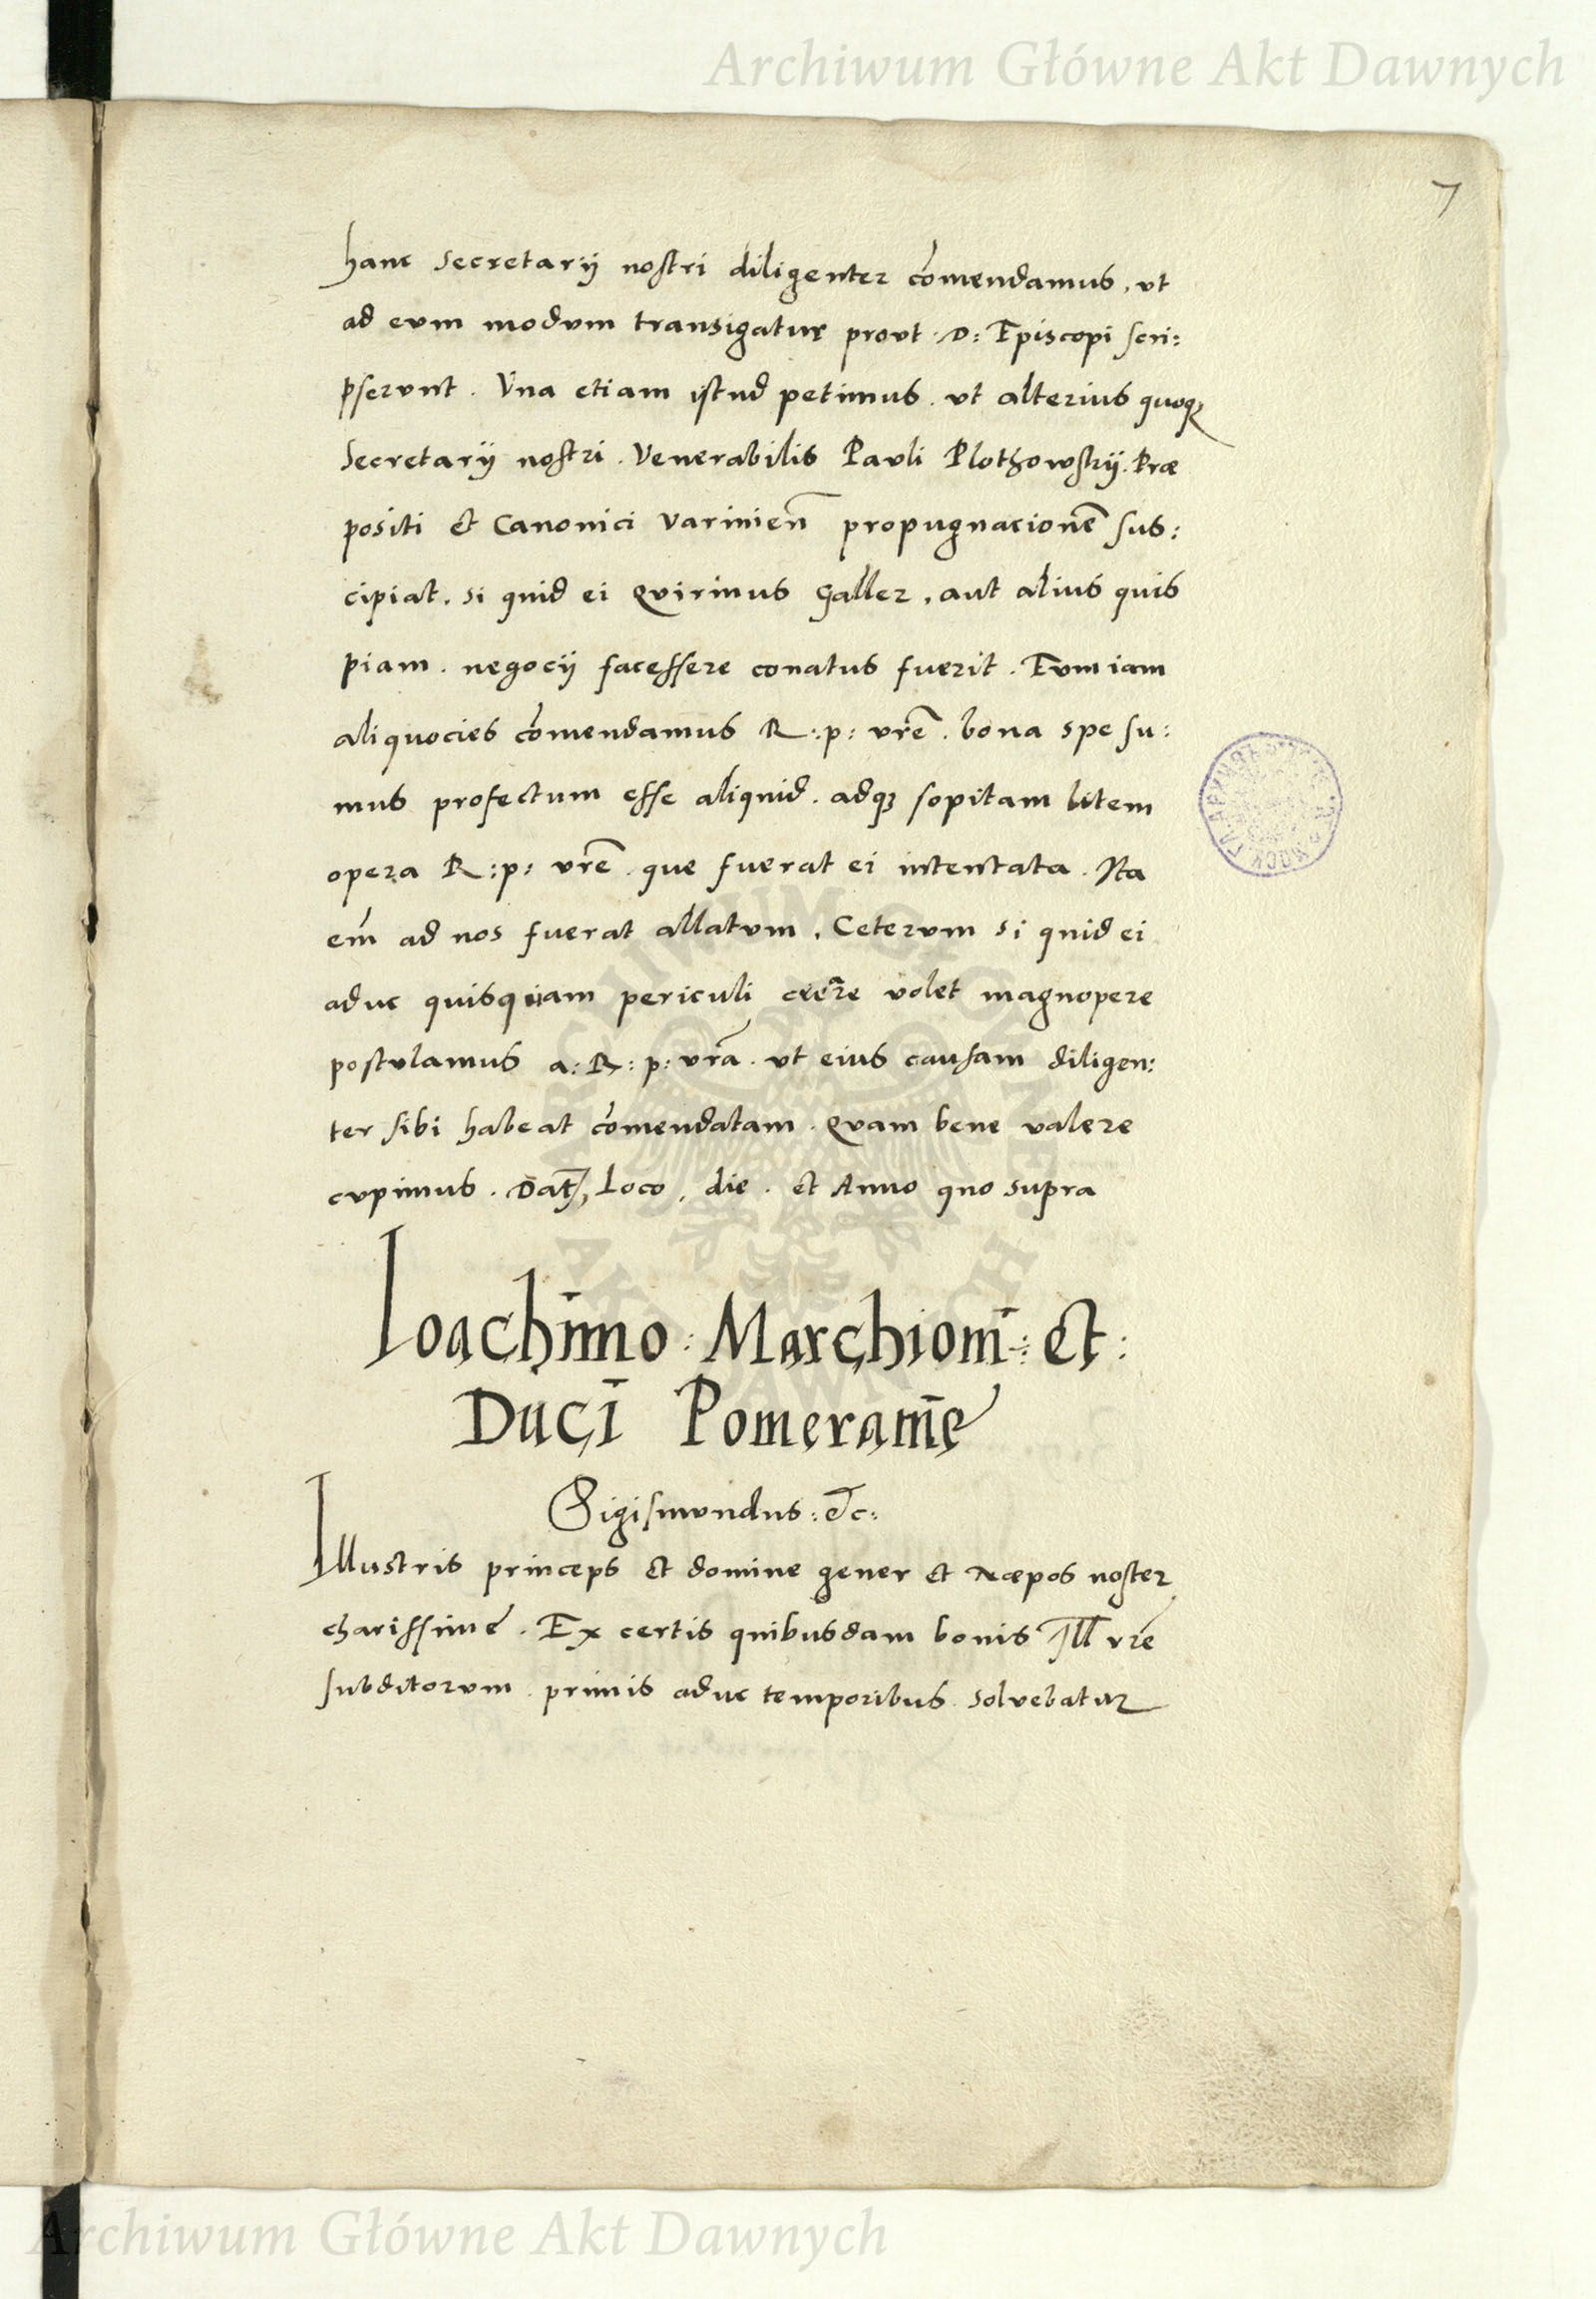 Archiwum Główne Akt Dawnych
7
hanc Secretarij nostri diligenter cōmendamus, ut
ad eum modum transigatur prout . D: Episcopi scri:
pserunt . Una etiam istud petimus . ut alterius quoqȝ
Secretarij nostri . Venerabilis Pauli Plothowskij . Præ
positi et Canonici Varmień propugnacionē sus:
cipiat, si quid ei Quirinus Galler, aut alius quis
piam . negocij facessere conatus fuerit . Eum iam
aliquocies cōmendamus R: p: vrē . bona spe su:
mus profectum esse aliquid . adqȝ sopitam litem
opera R: p: vrē . que fuerat ei intentata . Ita
em̄ ad nos fuerat allatum . Ceterum si quid ei
aduc quisquam periculi volet magnopere
postulamus a: R: p: vrā . ut eius causam diligen:
ter sibi habeat cōmendatam . Quam bene valere
cupimus . Dat, Loco, die . et Anno quo supra
Ioachimo : Marchioni : et :
Duci Pomeranię
Sigismundus : etc :
Illustris princeps et domine gener et Næpos noster
charissime . Ex certis quibusdam bonis Ill vrē
subditorum . primis aduc temporibus . solvebatur
Archiwum Główne Akt Dawnych